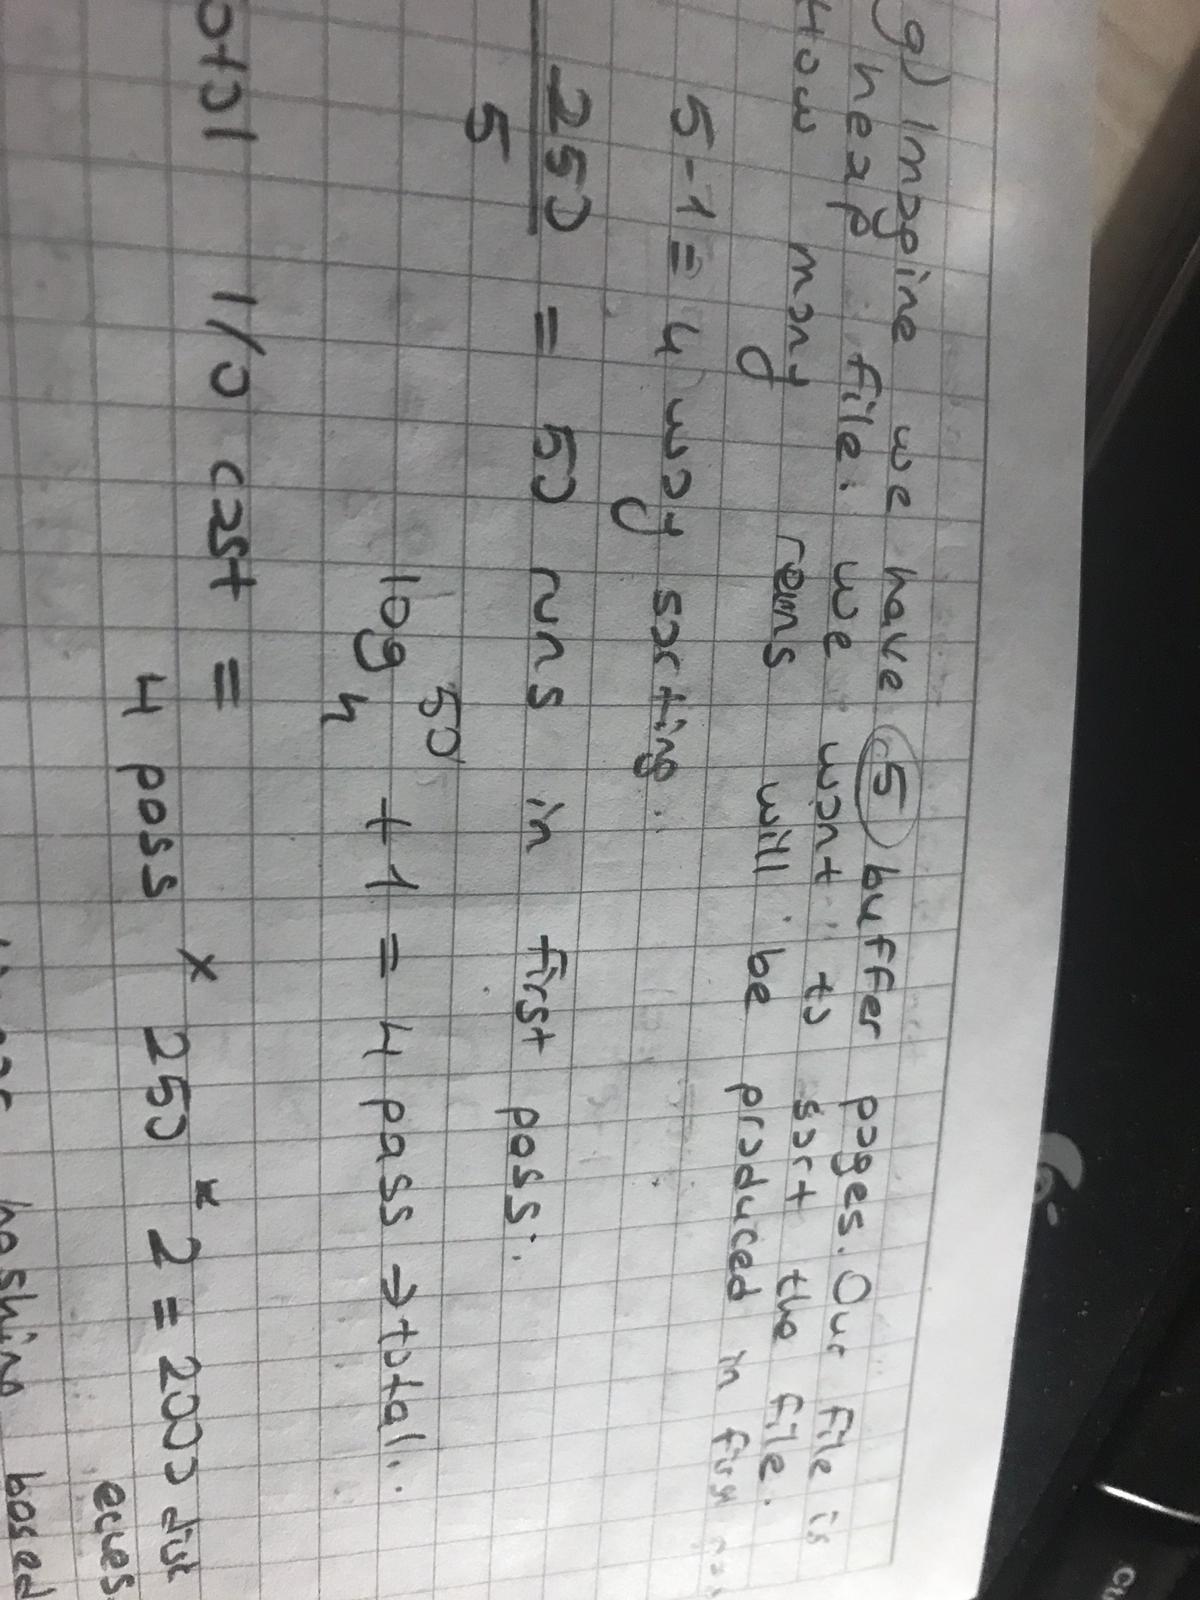 g) Imagine we have 5 buffer pages. Our file is
heap file. we want to sort the file.
How many runs will be produced in first
5-1 = 4 way sorting..
250
5
= 50 runs in first pass..
log 4 50 + 1 = 4 pass → total..
total I/O cost =
4 pass x 250 * 2 = 2000 disk
hashing based